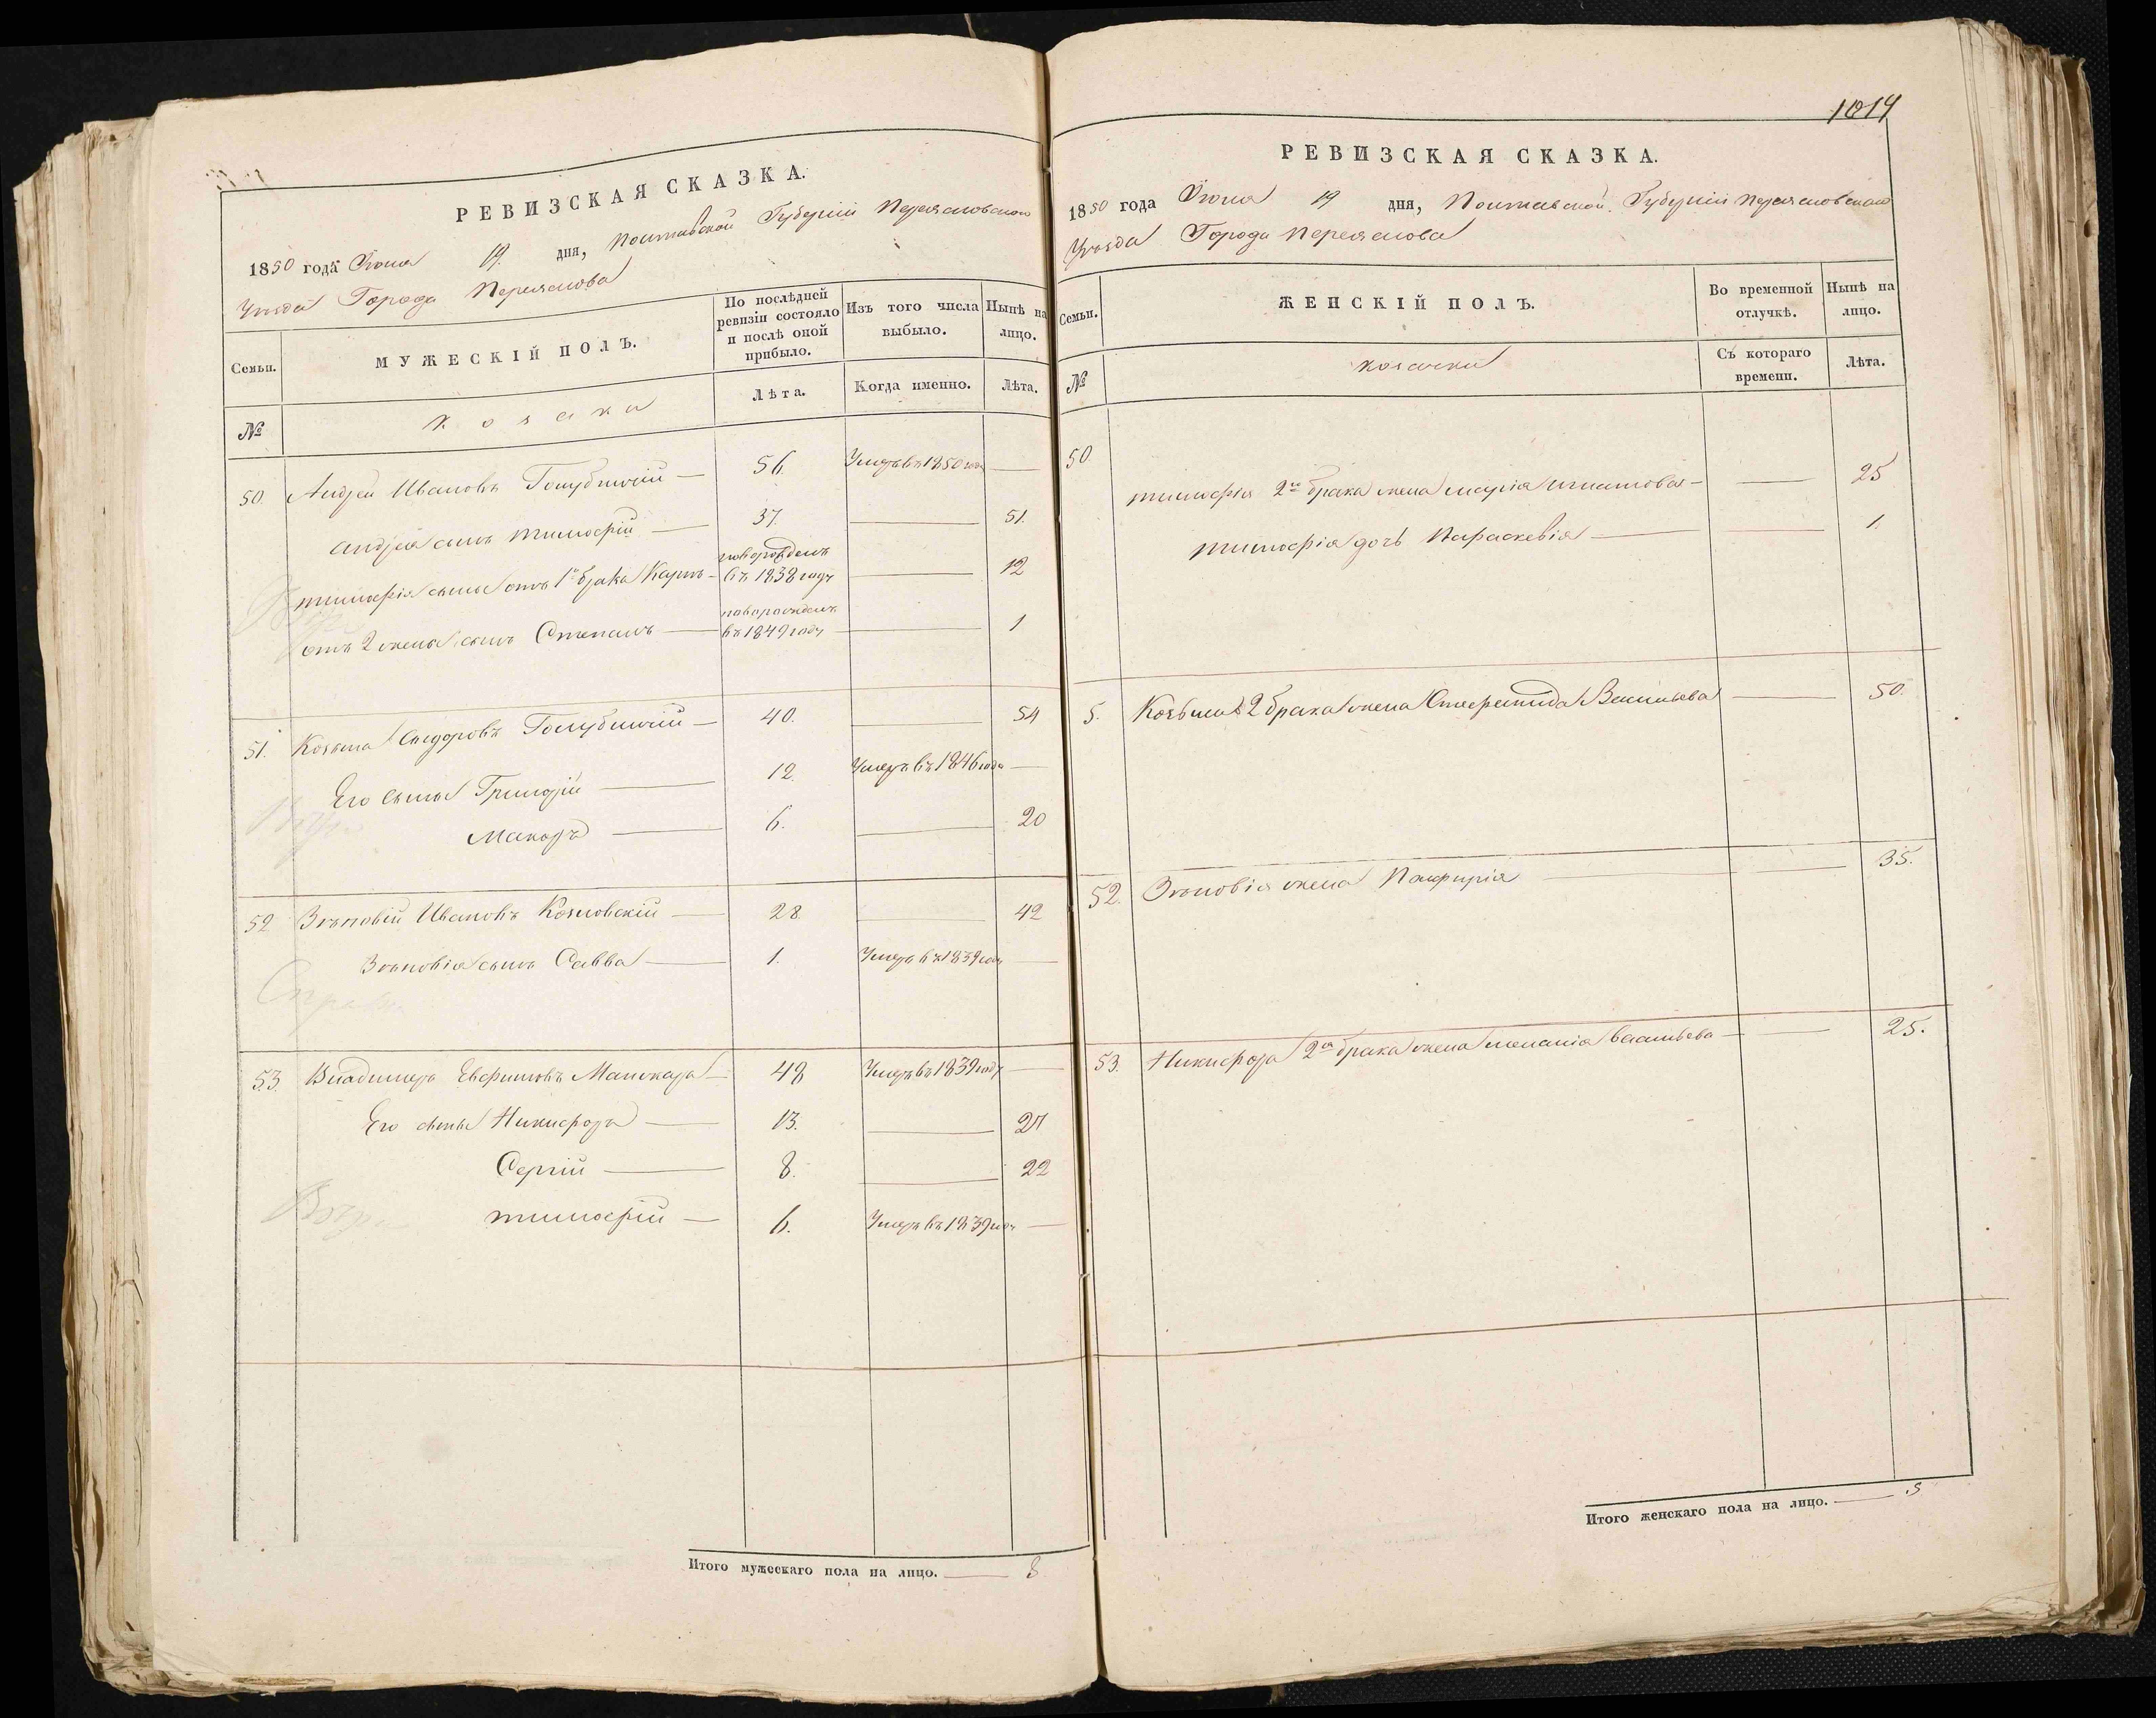 РЕВИЗСКАЯ СКАЗКА.
1850 года Іюня 19. дня, Полтавской Губерніи Переясловскаго
Уѣзда Города Переяслова
Семьи.
МУЖЕСКІЙ ПОЛЪ.
По послѣдней ревизіи состояло и послѣ оной прибыло.
Изъ того числа выбыло.
Нынѣ на лицо.
№
Козаки
Лѣта.
Когда именно.
Лѣта.
50 Андрей Ивановъ Голубничій — 56. Умеръ въ 1850 году —
Андрея сынъ Тимофій — 37. — 51.
Тимофія сынъ отъ 1го брака Карпъ — новорожденъ въ 1838 году — 12
отъ 2 жены сынъ Степанъ — новорожденъ въ 1849 году — 1
51. Козьма Сидоровъ Голубничій — 40. — 54
Его сыны Григорій — 12. Умеръ въ 1846 году —
Макаръ — 6. — 20
52 Зѣновій Ивановъ Козловскій — 28 — 42
Зѣновія сынъ Савва — 1. Умеръ въ 1839 году —
53. Владимеръ Евфимовъ — 48 Умеръ въ 1839 году —
Его сыны Никифоръ — 13. — 27
Сергій — 8. — 22
Тимофій — 6. Умеръ въ 1839 году —
Итого мужескаго пола на лицо. — 8
1014
РЕВИЗСКАЯ СКАЗКА.
1850 года Іюня 19 дня, Полтавской Губерніи Переясловскаго
Уѣзда Города Переяслова
Семьи.
ЖЕНСКІЙ ПОЛЪ.
Во временной отлучкѣ.
Нынѣ на лицо.
№
Козачки
Съ котораго времени.
Лѣта.
50.
Тимофія 2го брака жена Марія Игнатова — — 25
Тимофія дочь Параскевія — — 1.
5. Козьмы 2 брака жена Васильева — 50.
52. Зѣновія жена — 35.
53. Никифора 2го брака жена Меланія Васильева — — 25.
Итого женскаго пола на лицо. — 5